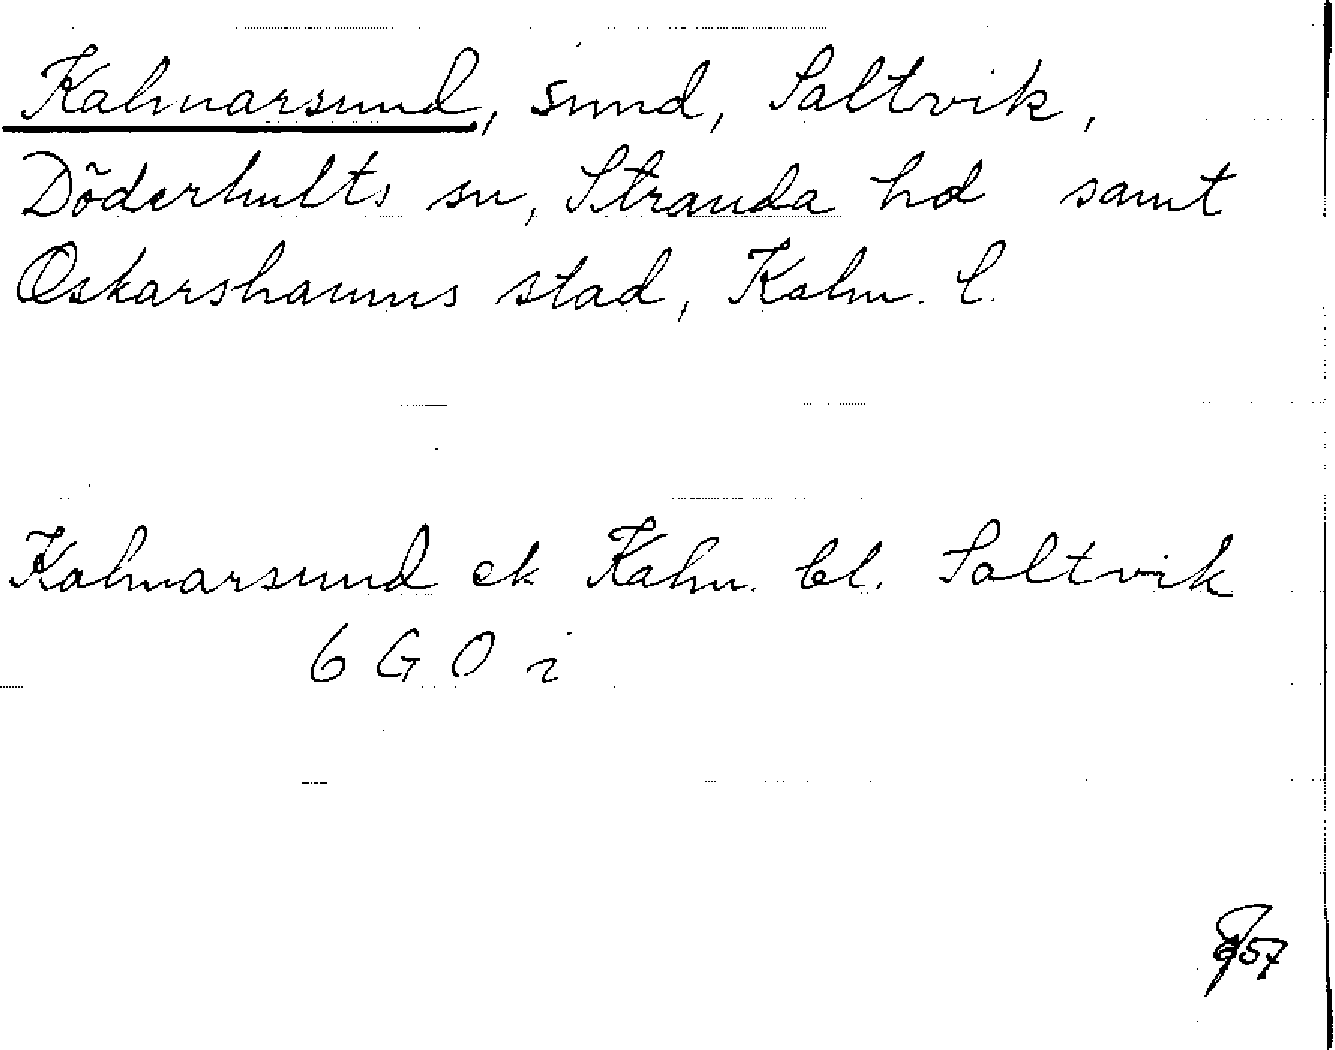 Kalmarsund, sund, Saltvik,
Döderhults sn, Stranda hd samt
Oskarshamns stad, Kalm. l.
Kalmarsund ek Kalm. bl. Saltvik
6 G O i
57